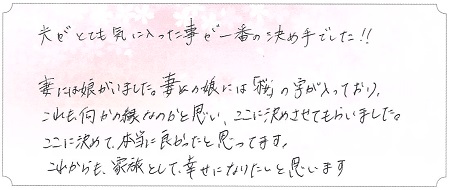 夫がとても気に入った事が一番の決め手でした!!
妻には娘がいました。妻との娘には「桜」の字が入っており、
これも何かの縁なのかと思い、ここに決めさせてもらいました。
ここに決めて、本当に良かったと思ってます。
これからも、家族として、幸せになりたいと思います